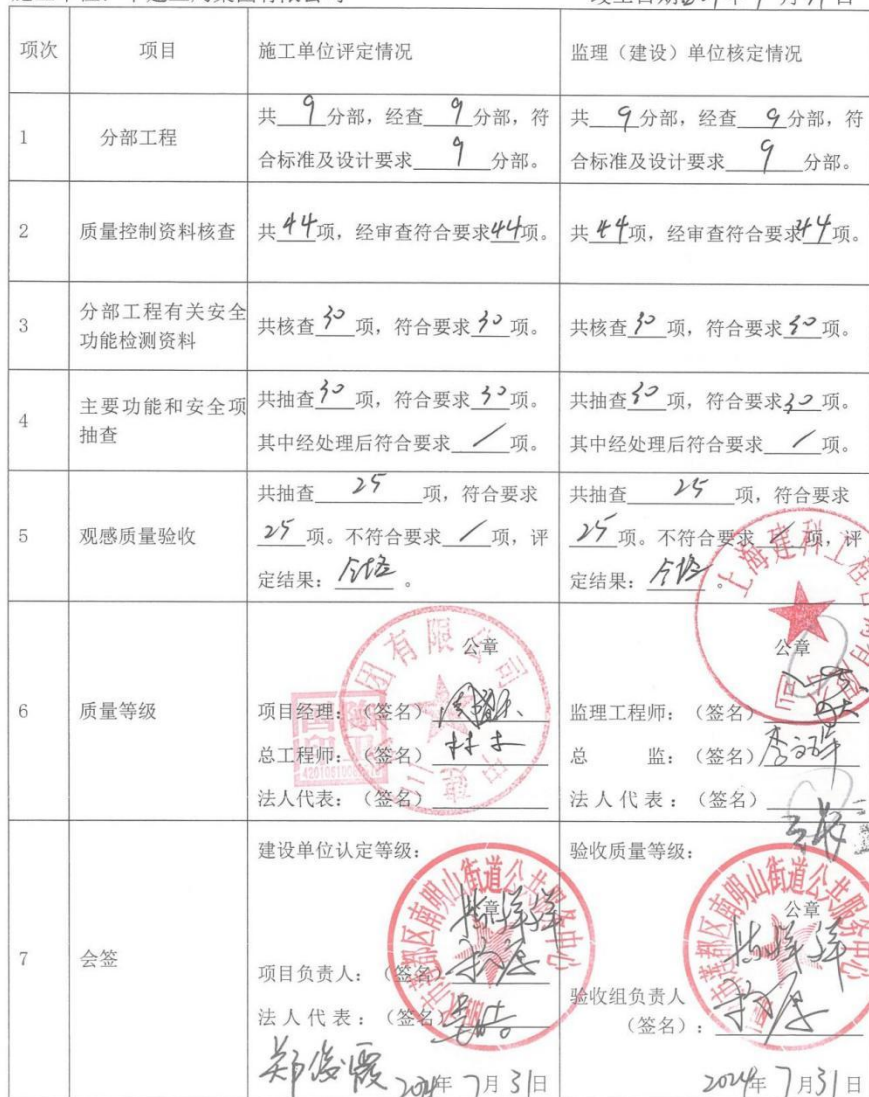 竣工日期:2024年7月31日
项次 项目 施工单位评定情况 监理（建设）单位核定情况
1 分部工程
共 9 分部，经查 9 分部，符
合标准及设计要求 9 分部。
共 9 分部，经查 9 分部，符
合标准及设计要求 9 分部。
2 质量控制资料核查
共 44 项，经审查符合要求 44 项。
共 44 项，经审查符合要求 44 项。
3 分部工程有关安全
功能检测资料
共核查 30 项，符合要求 30 项。
共核查 30 项，符合要求 30 项。
4 主要功能和安全项
抽查
共抽查 30 项，符合要求 30 项。
其中经处理后符合要求 / 项。
共抽查 30 项，符合要求 30 项。
其中经处理后符合要求 / 项。
5 观感质量验收
共抽查 25 项，符合要求
25 项。不符合要求 / 项，评
定结果：合格 。
共抽查 25 项，符合要求
25 项。不符合要求 / 项，评
定结果：合格 。
6 质量等级
公章
项目经理：（签名）
总工程师：（签名）
法人代表：（签名）
中建三 团有限公司
公章
监理工程师：（签名）
总 监：（签名）
法人代表：（签名）
上海建科工程咨询有限公司
7 会签
建设单位认定等级：
公章
项目负责人：（签名）
法人代表：（签名）
郑俊霞
2024年7月31日
市莲都区南明山街道公共服务中心
验收质量等级：
公章
验收组负责人
（签名）：
2024年7月31日
市莲都区南明山街道公共服务中心